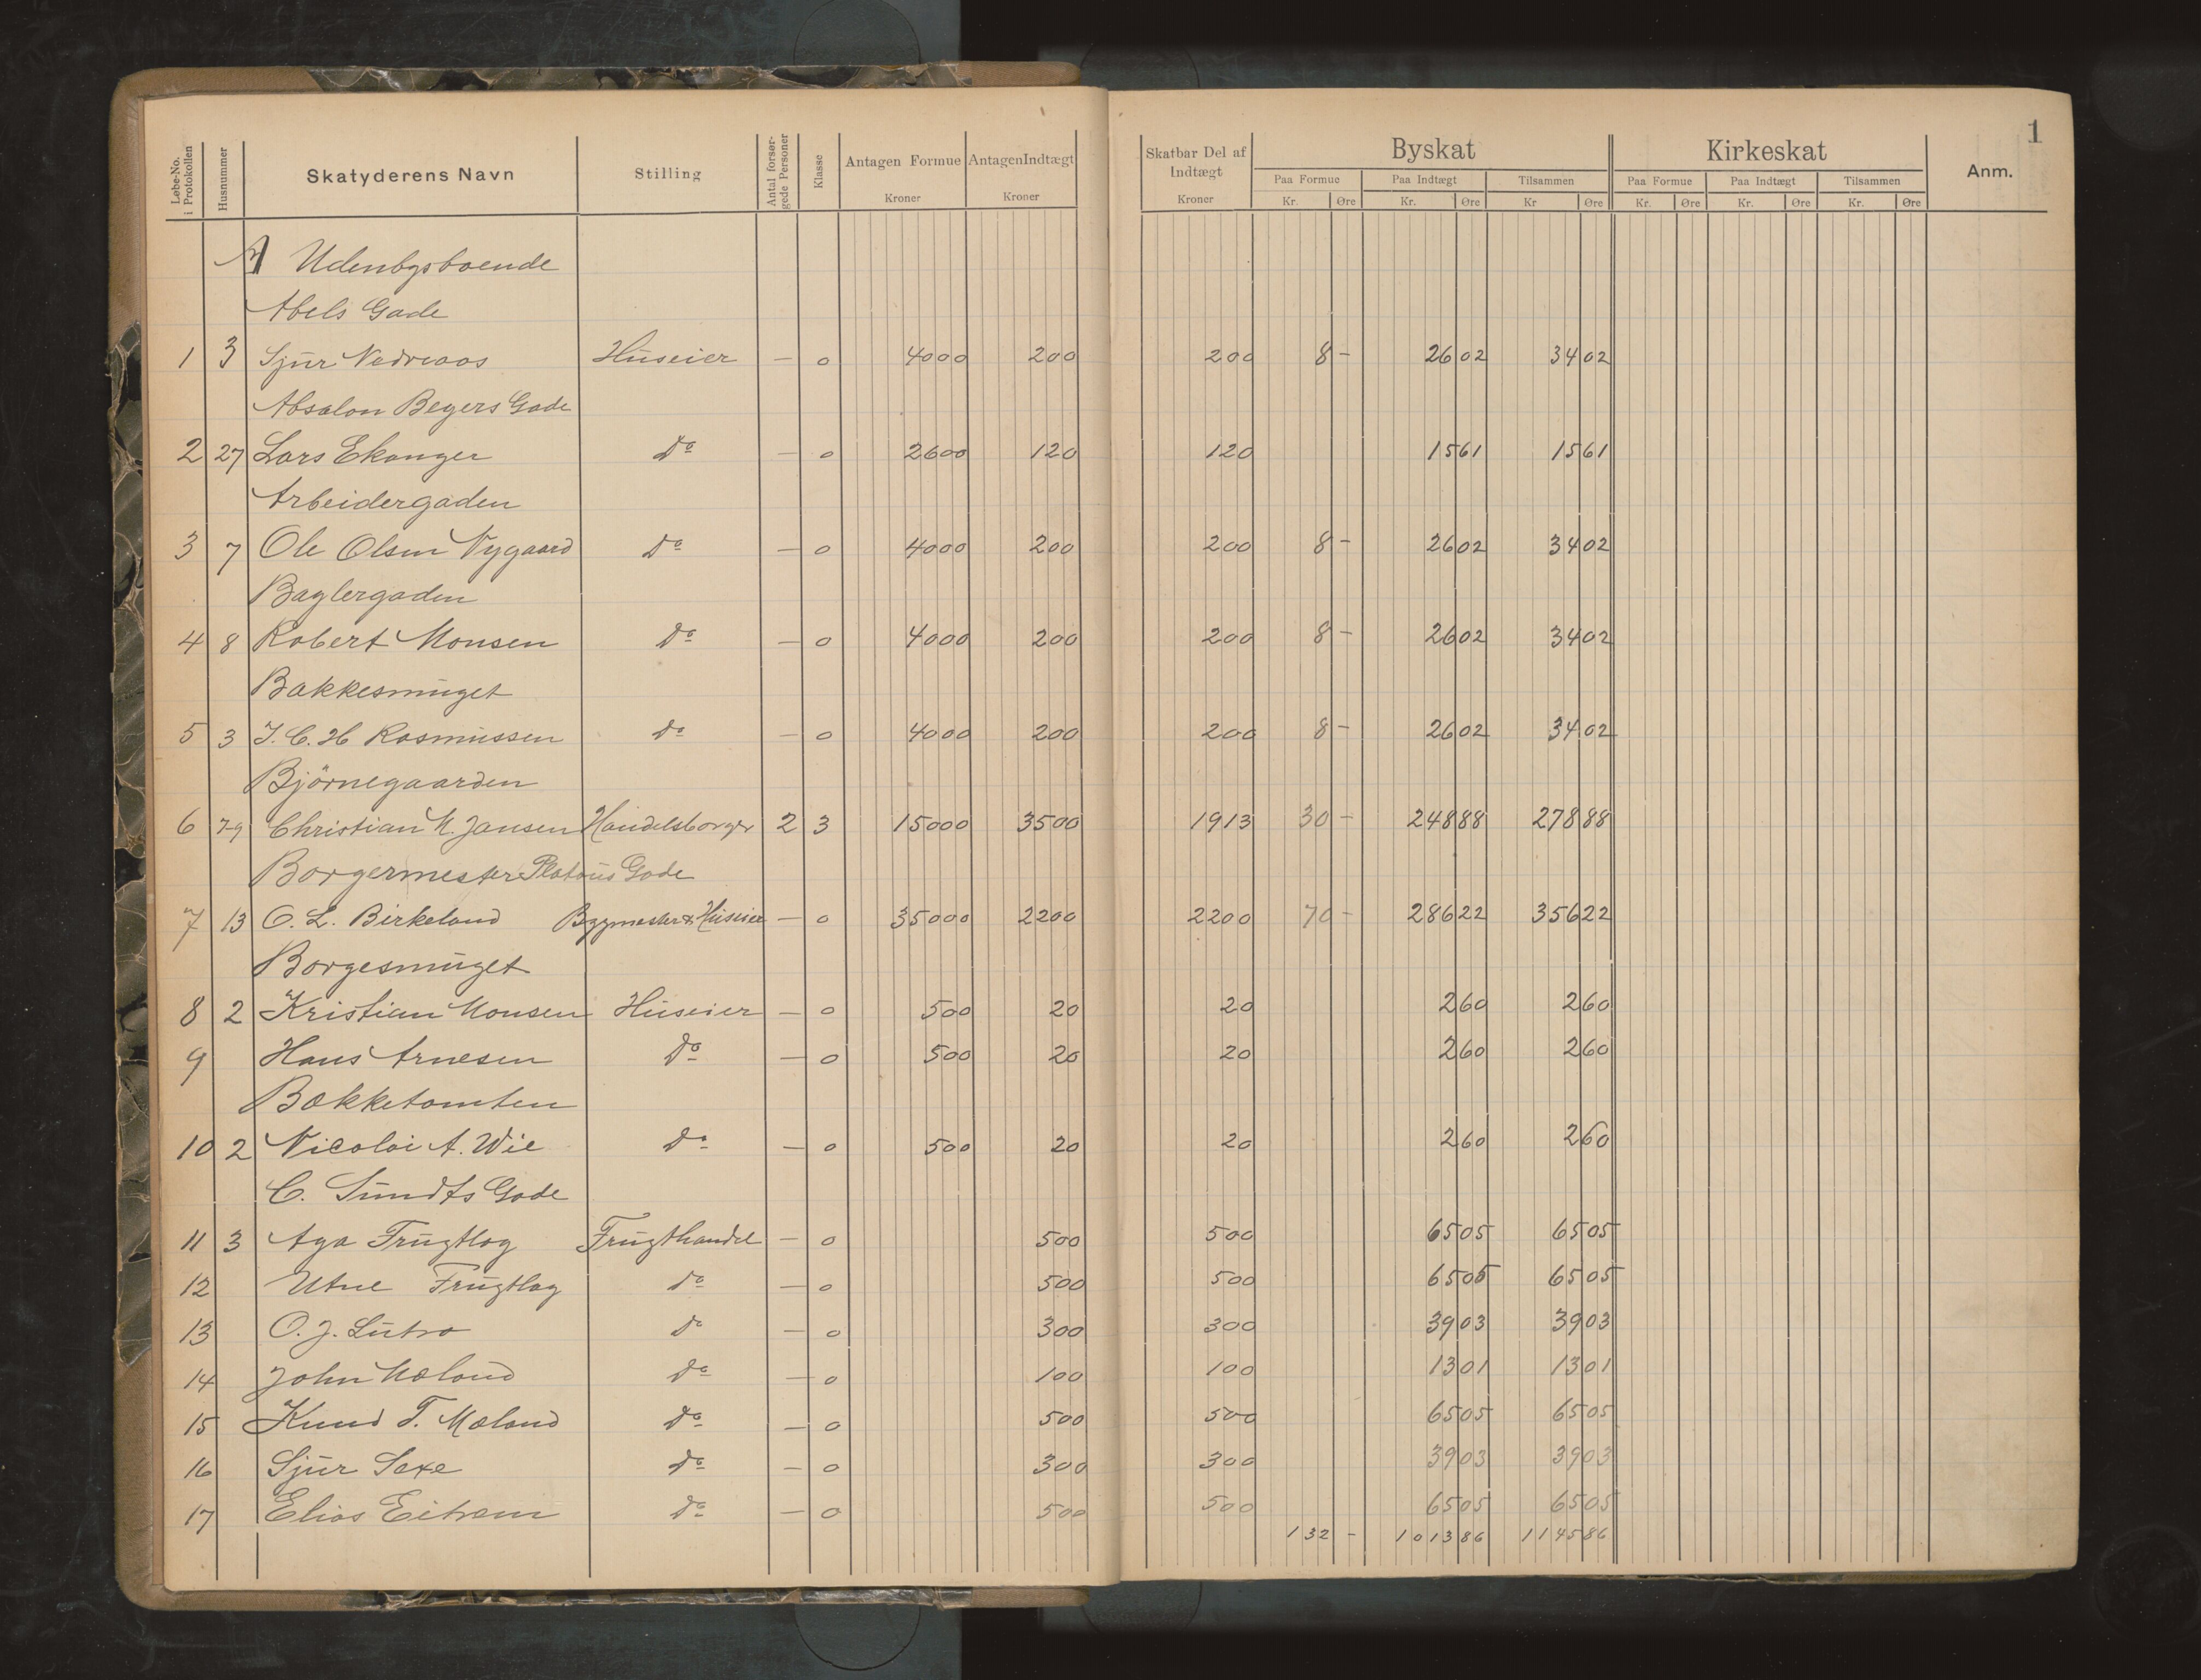 1
Løbe-No. i Protokollen Husnummer Skatyderens Navn Stilling Antal forsør-gede Personer Klasse Antagen Formue Kroner Antagen Indtægt Kroner Skatbar Del af Indtægt Kroner Byskat Kirkeskat Anm.
Paa Formue Paa Indtægt Tilsammen Paa Formue Paa Indtægt Tilsammen
Kr. Øre Kr. Øre Kr Øre Kr. Øre Kr. Øre Kr. Øre
A Udenbysboende
Abels Gade
1 3 Sjur Nedreaas Huseier — 0 4000 200 200 8 - 26 02 34 02
Absalon Beyers Gade
2 27 Lars Ekanger Do — 0 2600 120 120 15 61 15 61
Arbeidergaden
3 7 Ole Olsen Nygaard Do — 0 4000 200 200 8 - 26 02 34 02
Baglergaden
4 8 Robert Monsen Do — 0 4000 200 200 8 - 26 02 34 02
Bakkesmuget
5 3 J. C. H Rasmussen Do — 0 4000 200 200 8 - 26 02 34 02
Björnegaarden
6 7-9 Christian M. Jansen Handelsborger 2 3 15000 3500 1913 30 - 248 88 278 88
Borgermester Platous Gade
7 13 O. L. Birkeland Bygmester & Huseier — 0 35000 2200 2200 70 - 286 22 356 22
Borgesmuget
8 2 Kristian Monsen Huseier — 0 500 20 20 2 60 2 60
9 Hans Arnesen Do — 0 500 20 20 2 60 2 60
Bækketomten
10 2 Nicolai A. Wie Do — 0 500 20 20 2 60 2 60
C. Sundts Gade
11 3 Aga Frugtlag Frugthandel — 0 500 500 65 05 65 05
12 Utne Frugtlag Do — 0 500 500 65 05 65 05
13 O. J. Lutro Do — 0 300 300 39 03 39 03
14 John Mæland Do — 0 100 100 13 01 13 01
15 Knud T. Mæland Do — 0 500 500 65 05 65 05
16 Sjur Saxe Do — 0 300 300 39 03 39 03
17 Elias Eitrem Do — 0 500 500 65 05 65 05
132 - 1013 86 1145 86